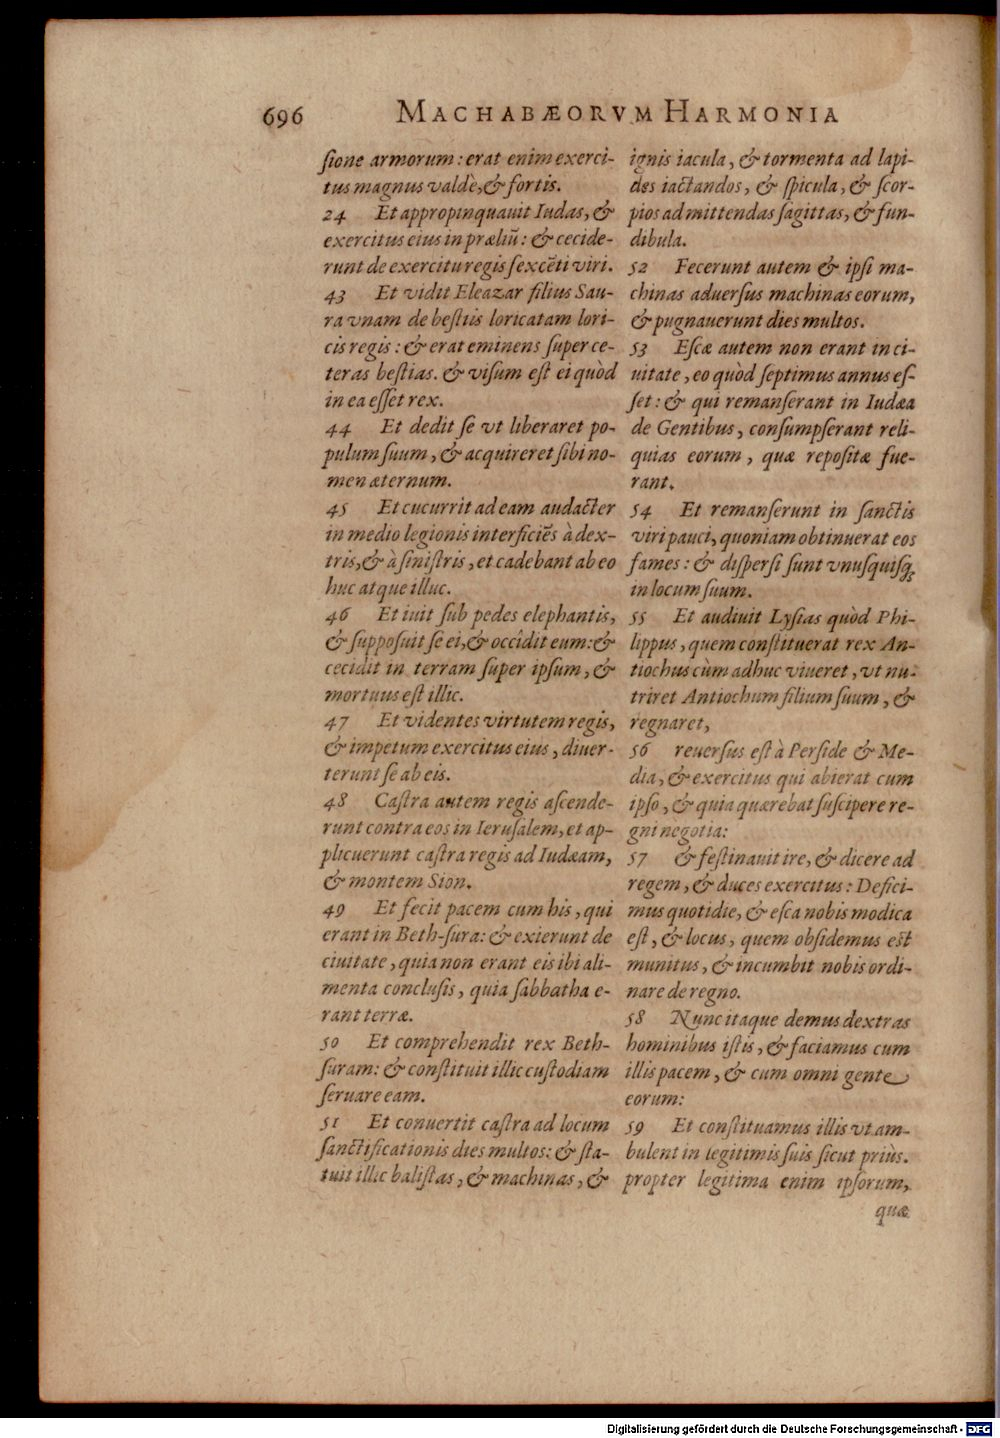 696 MACHABÆORVM HARMONIA
ſione armorum: erat enim exerci-
tus magnus valdè, & fortis.
24 Et appropinquauit Iudas, &
exercitus eius in præliū: & cecide-
runt de exercitu regis ſexcēti viri.
43 Et vidit Eleazar filius Sau-
ra vnam de beſtiis loricatam lori-
cis regis: & erat eminens ſuper ce-
teras beſtias. & viſum eſt ei quòd
in ea eſſet rex.
44 Et dedit ſe vt liberaret po-
pulum ſuum, & acquireret ſibi no-
men æternum.
45 Et cucurrit ad eam audacter
in medio legionis interficiēs à dex-
tris, & à ſiniſtris, et cadebant ab eo
huc atque illuc.
46 Et iuit ſub pedes elephantis,
& ſuppoſuit ſe ei, & occîdit eum: &
cecidit in terram ſuper ipſum, &
mortuus eſt illic.
47 Et videntes virtutem regis,
& impetum exercitus eius, diuer-
terunt ſe ab eis.
48 Caſtra autem regis aſcende-
runt contra eos in Ieruſalem, et ap-
plicuerunt caſtra regis ad Iudæam,
& montem Sion.
49 Et fecit pacem cum his, qui
erant in Beth-ſura: & exierunt de
ciuitate, quia non erant eis ibi ali-
menta concluſis, quia ſabbatha e-
rant terræ.
50 Et comprehendit rex Beth-
ſuram: & conſtituit illic cuſtodiam
ſeruare eam.
51 Et conuertit caſtra ad locum
ſanctificationis dies multos: & ſta-
tuit illic baliſtas, & machinas, &
ignis iacula, & tormenta ad lapi-
des iactandos, & ſpicula, & ſcor-
pios ad mittendas ſagittas, & fun-
dibula.
52 Fecerunt autem & ipſi ma-
chinas aduerſus machinas eorum,
& pugnauerunt dies multos.
53 Eſcæ autem non erant in ci-
uitate, eo quòd ſeptimus annus eſ-
ſet: & qui remanſerant in Iudæa
de Gentibus, conſumpſerant reli-
quias eorum, quæ repoſitæ fue-
rant.
54 Et remanſerunt in ſanctis
viri pauci, quoniam obtinuerat eos
fames: & diſperſi ſunt vnuſquiſq;
in locum ſuum.
55 Et audiuit Lyſias quòd Phi-
lippus, quem conſtituerat rex An-
tiochus cùm adhuc viueret, vt nu-
triret Antiochum filium ſuum, &
regnaret,
56 reuerſus eſt à Perſide & Me-
dia, & exercitus qui abierat cum
ipſo, & quia quærebat ſuſcipere re-
gni negotia:
57 & feſtinauit ire, & dicere ad
regem, & duces exercitus: Defici-
mus quotidie, & eſca nobis modica
eſt, & locus, quem obſidemus eſt
munitus, & incumbit nobis ordi-
nare de regno.
58 Nunc itaque demus dextras
hominibus iſtis, & faciamus cum
illis pacem, & cum omni gente
eorum:
59 Et conſtituamus illis vt am-
bulent in legitimis ſuis ſicut priùs.
propter legitima enim ipſorum,
quæ
Digitalisierung gefördert durch die Deutsche Forschungsgemeinschaft - DFG